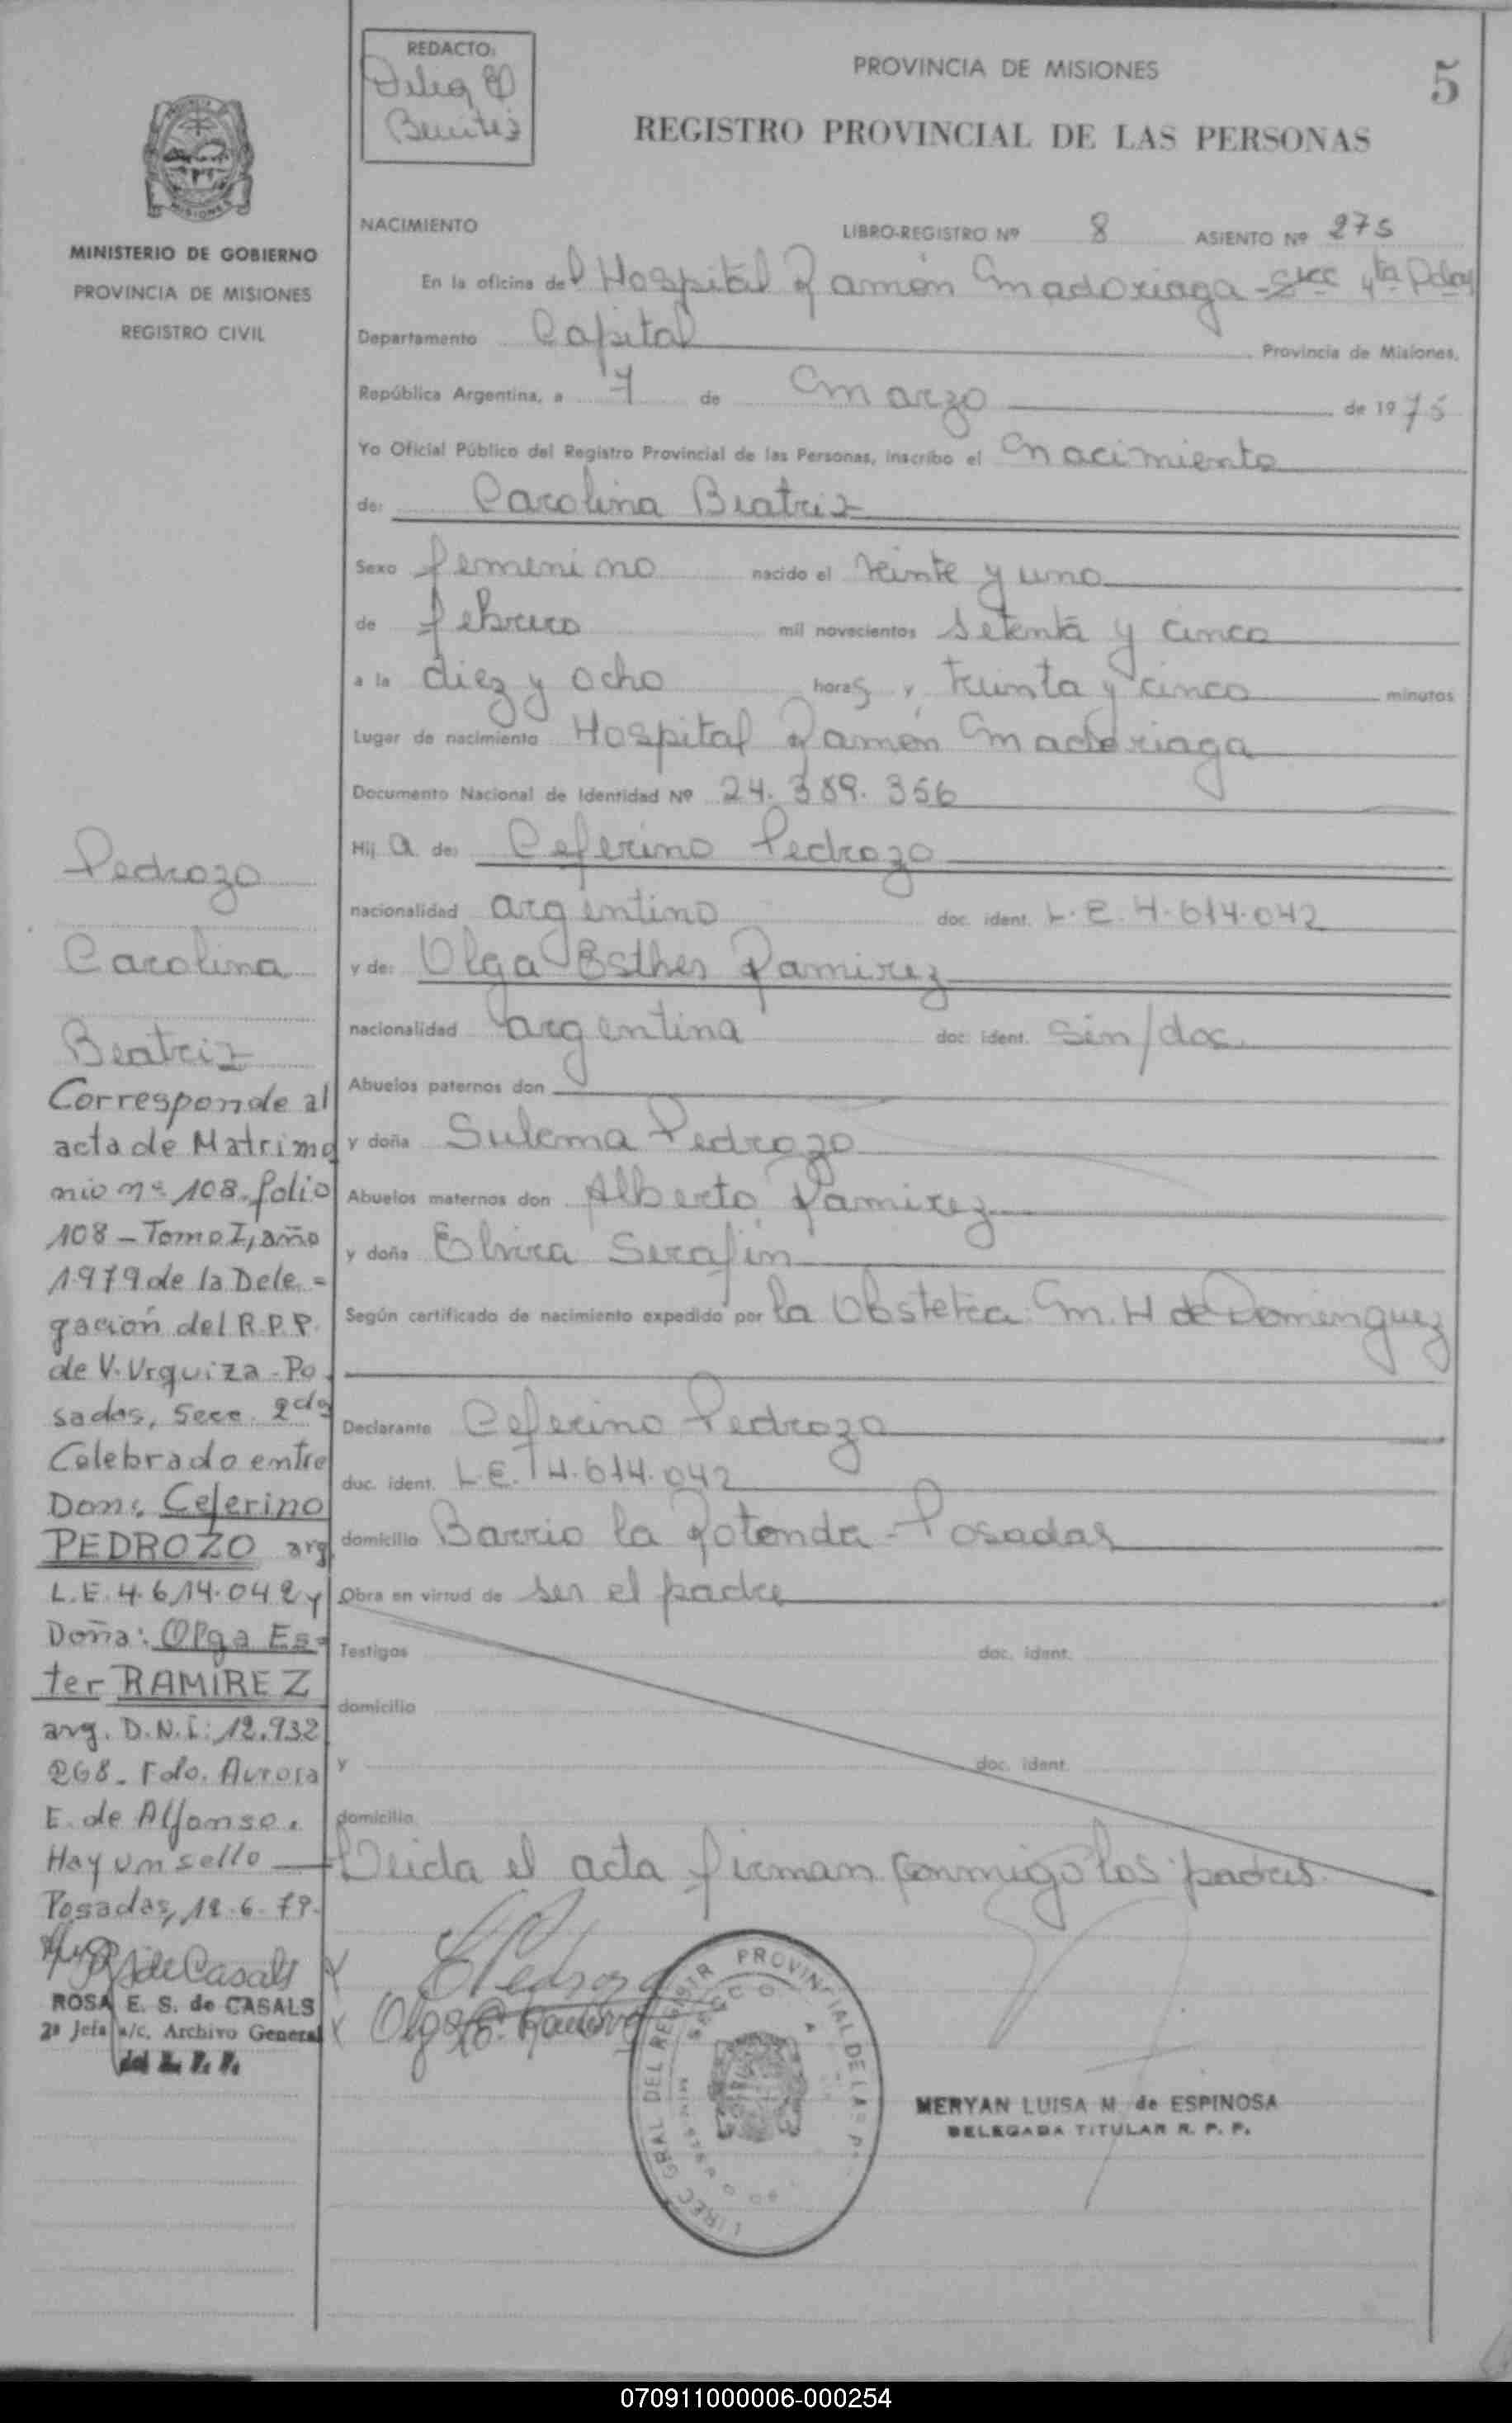 REDACTO:
Benitez
PROVINCIA DE MISIONES
5
REGISTRO PROVINCIAL DE LAS PERSONAS
MISIONES
MINISTERIO DE GOBIERNO
PROVINCIA DE MISIONES
REGISTRO CIVIL
NACIMIENTO LIBRO-REGISTRO Nº 8 ASIENTO Nº 275
En la oficina del Hospital Ramón Madoriaga - Secc 4ta Pdas
Departamento Capital Provincia de Misiones,
República Argentina, a 7 de Marzo de 1975
Yo Oficial Público del Registro Provincial de las Personas, inscribo el Nacimiento
de: Carolina Beatriz
Sexo femenino nacido el veinte y uno
de febrero mil novecientos setenta y cinco
a la diez y ocho horas y treinta y cinco minutos
Lugar de nacimiento Hospital Ramón Maderiaga
Documento Nacional de Identidad Nº 24.389.356
Hij a de: Ceferino Pedrozo
nacionalidad argentino doc. ident. L.E. 4.614.042
y de: Olga Esther Ramirez
nacionalidad argentina doc. ident. Sin/doc.
Abuelos paternos don
y doña Sulema Pedrozo
Abuelos maternos don Alberto Ramirez
y doña Elvira Serafin
Según certificado de nacimiento expedido por la Obstetra M. H de Dominguez
Declarante Ceferino Pedrozo
doc. ident. L.E. 4.614.042
domicilio Barrio la Rotonda - Posadas
Obra en virtud de ser el padre
Testigos doc. ident.
domicilio
y doc. ident.
domicilio
Leida el acta firman conmigo los padres.
Pedrozo
Carolina
Beatriz
Corresponde al
acta de Matrimo
nio nº 108 folio
108 - Tomo I, año
1979 de la Dele =
gación del R.P.P.
de V. Urquiza - Po
sadas, Secc. 2da
Celebrado entre
Don: Ceferino
PEDROZO arg.
L.E. 4.614.042 y
Doña: Olga Es=
ter RAMIREZ
arg. D.N.I: 12.932
268. Fdo. Aurora
E. de Alfonso.
Hay un sello
Posadas, 12.6.79.
de Casals
ROSA E. S. de CASALS
2ª Jefa a/c. Archivo General
del R. P. P.
X Pedrozo
X Olga E. Ramirez
DIREC GRAL DEL REGISTR PROVINCIAL DE LAS P
MERYAN LUISA M. de ESPINOSA
DELEGADA TITULAR R. P. P.
070911000006-000254